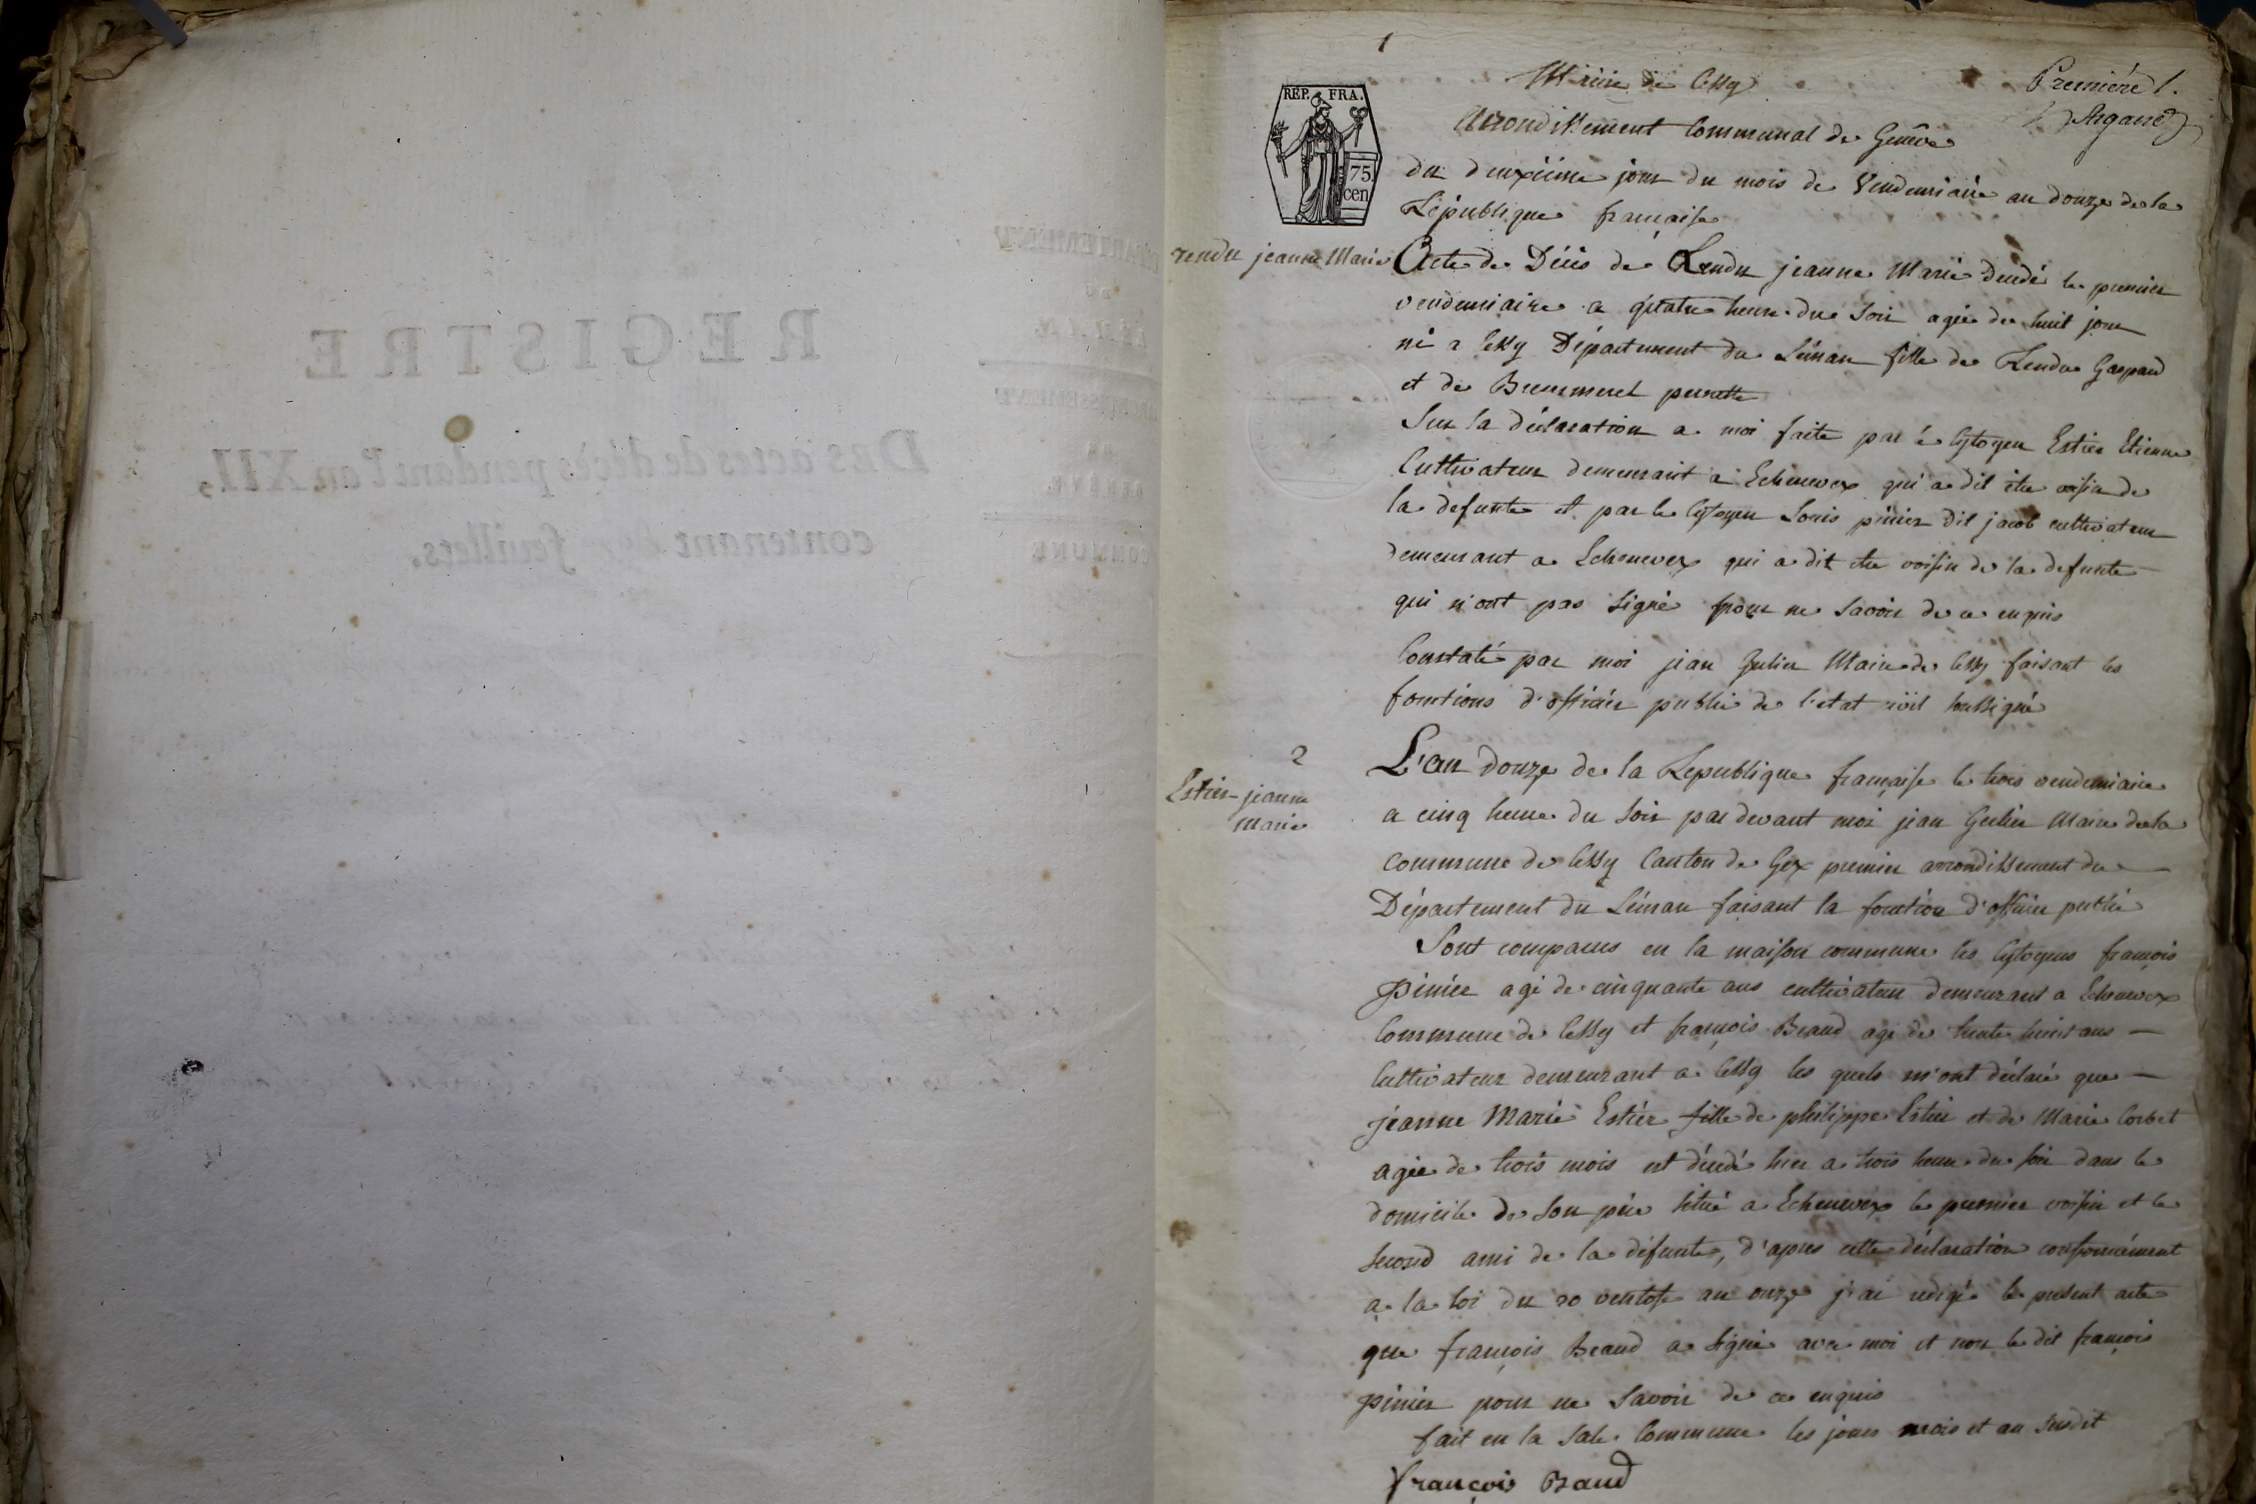 REGISTRE
Des actes de décès pendant l'an XII,
contenant feuillets.
DÉPARTEMENT
DU
LÉMAN.
ARRONDISSEMENT
DE
GENÈVE.
COMMUNE
1
Mairie de Cessy
Première f.
Argand
REP. FRA.
75
cen
Arrondissement Communal de Genève
du deuxième jour du mois de Vendemiaire an douze de la
République française
rendu jeanne Marie
Acte de Décès de Rendu jeanne Marie decedé le premier
vendemiaire a quatre heure du soir agée de huit jour
né a Cessy Département du Léman fille de Rendu Gaspard
et de pernette
Sur la déclaration a moi faite par le Cytoyen Estier Etienne
Cultivateur demeurant a Echenevex qui a dit être voisin de
la defunte et par le Cytoyen Louis pinier dit jacob cultivateur
demeurant a Echenevex qui a dit etre voisin de la defunte
qui n'ont pas signé pour ne savoir de ce enquis
Constaté par moi jean Gulier Maire de Cessy faisant les
fonctions d'officier public de l'etat civil soussigné
2
Estier jeanne
marie
L'an douze de la Republique française le trois vendemiaire
a cinq heure du soir par devant moi jean Gulier Maire de la
commune de Cessy Canton de Gex premier arrondissement du
Département du Léman faisant la fonction d'officier public
Sont comparus en la maison commune les Cytoyens françois
pinier agé de cinquante ans cultivateur demeurant a Echenevex
Commune de Cessy et françois Beaud agé de trente huit ans
Cultivateur demeurant a Cessy les quels m'ont déclaré que
jeanne Marie Estier fille de philippe Estier et de Marie Corbet
agée de trois mois est décedé hier a trois heure du soir dans le
domicile de son père situé a Echenevex le premier voisin et le
second ami de la défunte, d'apres cette déclaration conformément
a la loi du 20 ventose an onze j'ai redigé le present acte
que françois Beaud a signé avec moi et non le dit françois
pinier pour ne savoir de ce enquis
fait en la Sale Commune les jours mois et an susdit
françois Baud